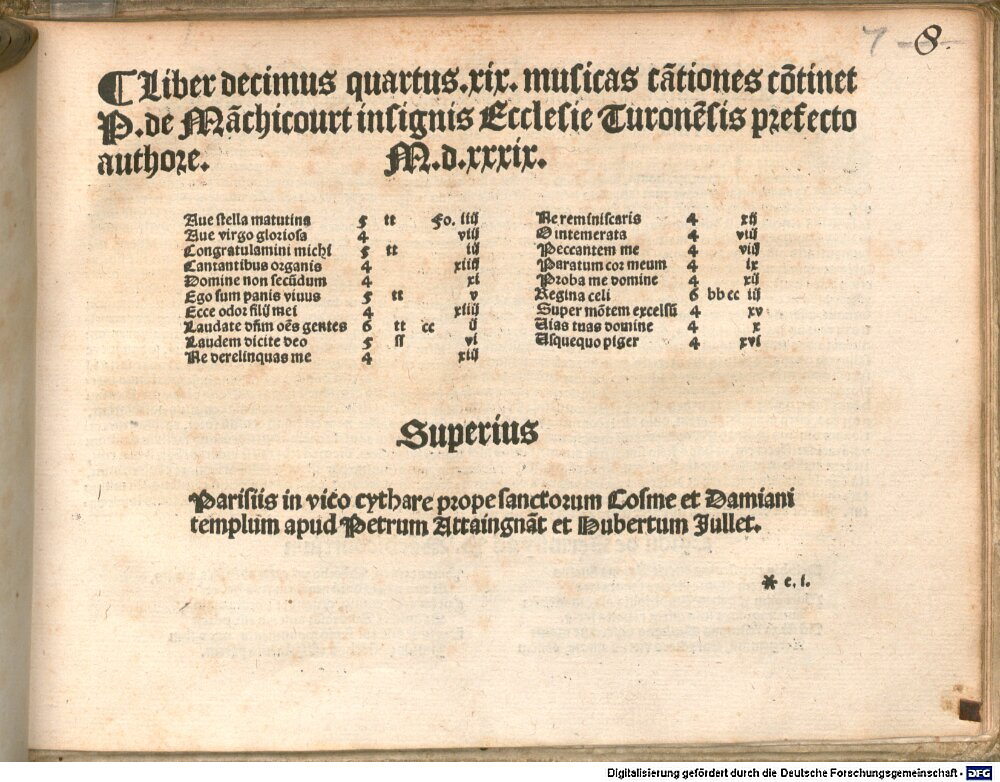 7 - 8.
¶ Liber decimus quartus .xix. musicas cãtiones cõtinet
P. de Mãchicourt insignis Ecclesie Turonẽsis prefecto
authore. M.d.xxxix.
Aue stella matutina 5 tt Fo. iiij
Aue virgo gloriosa 4 viij
Congratulamini michi 5 tt iij
Cantantibus organis 4 xiiij
Domine non secũdum 4 xi
Ego sum panis viuus 5 tt v
Ecce odor filij mei 4 xiiij
Laudate dñm oẽs gentes 6 tt cc ij
Laudem dicite deo 5 ss vi
Ne derelinquas me 4 xiij
Ne reminiscaris 4 xij
O intemerata 4 viij
Peccantem me 4 viij
Paratum cor meum 4 ix
Proba me domine 4 xij
Regina celi 6 bb cc iij
Super mõtem excelsũ 4 xv
Vias tuas domine 4 x
Vsquequo piger 4 xvi
Superius
Parisiis in vico cythare prope sanctorum Cosme et Damiani
templum apud Petrum Attaingnãt et Hubertum Jullet.
* e. i.
Digitalisierung gefördert durch die Deutsche Forschungsgemeinschaft - DFG